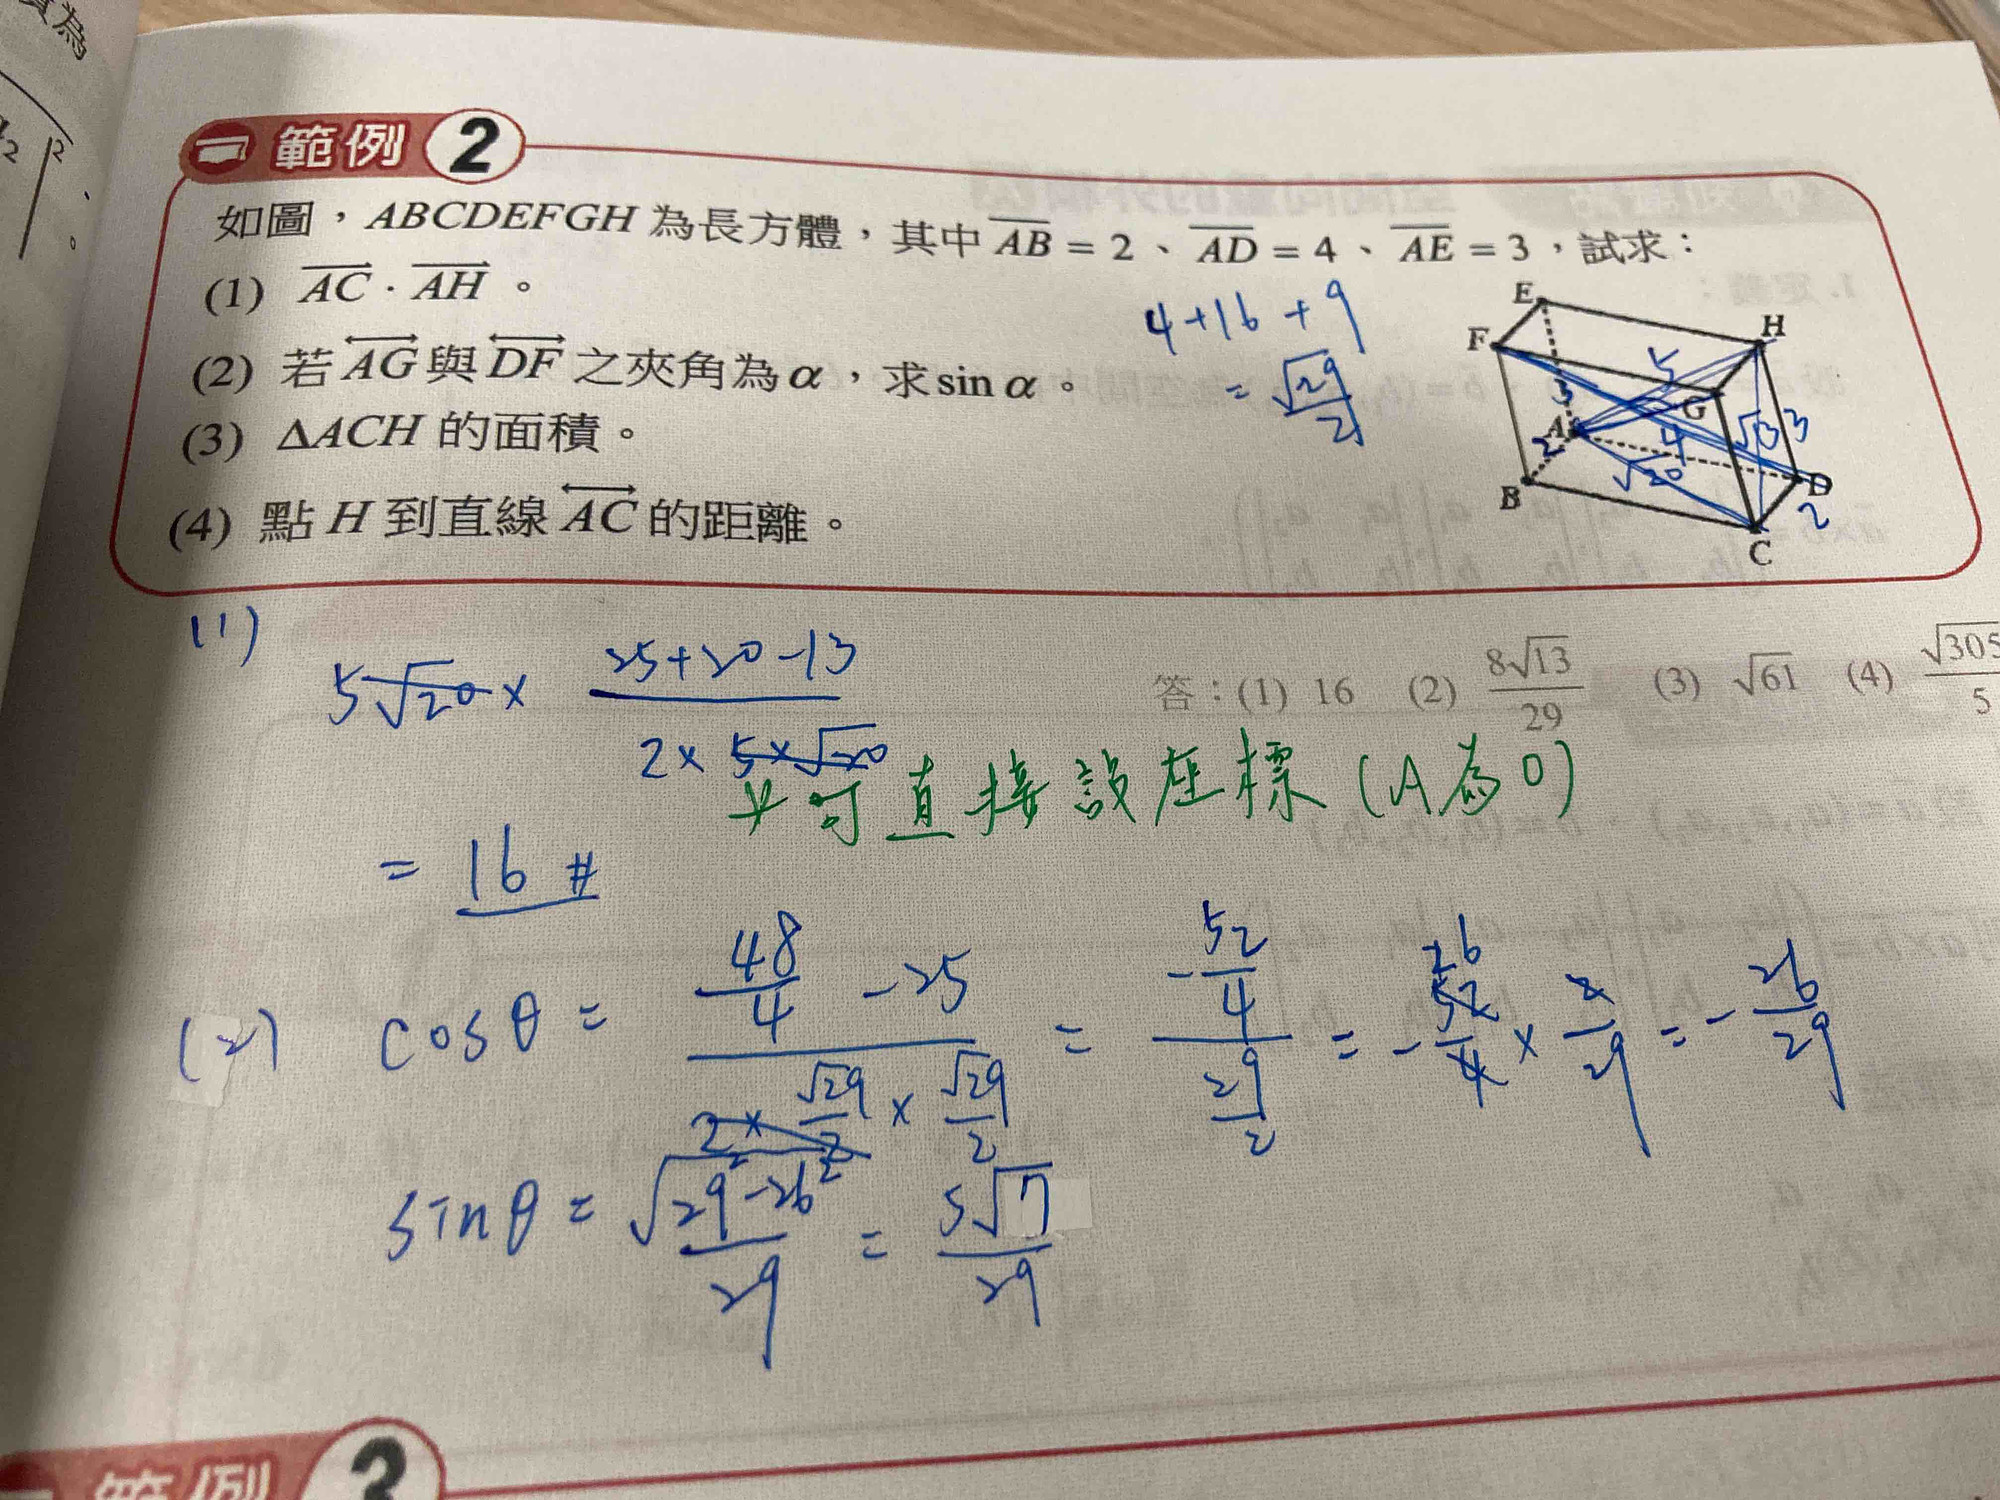 範例 2
如圖，ABCDEFGH 為長方體，其中 \overline{AB} = 2、\overline{AD} = 4、\overline{AE} = 3，試求：
(1) \overrightarrow{AC} · \overrightarrow{AH}。
(2) 若 \overleftrightarrow{AG} 與 \overleftrightarrow{DF} 之夾角為 α，求 sin α。
(3) ΔACH 的面積。
(4) 點 H 到直線 \overleftrightarrow{AC} 的距離。
4+16+9
= √29/2
E
H
F
5
3
G
A
4
√13
3
2
√20
D
B
2
C
(1)
5√20 × (25+20-13)/(2×5×√20)
答：(1) 16 (2) 8√13/29 (3) √61 (4) √305/5
也可直接設座標(A為0)
= 16 #
(2) cosθ = (48/4 - 25)/(2×√29/2×√29/2) = (-52/4)/(29/2) = -52/4 × 2/29 = -26/29
26
sinθ = √29²-26²/29 = 5√7/29
範例 3